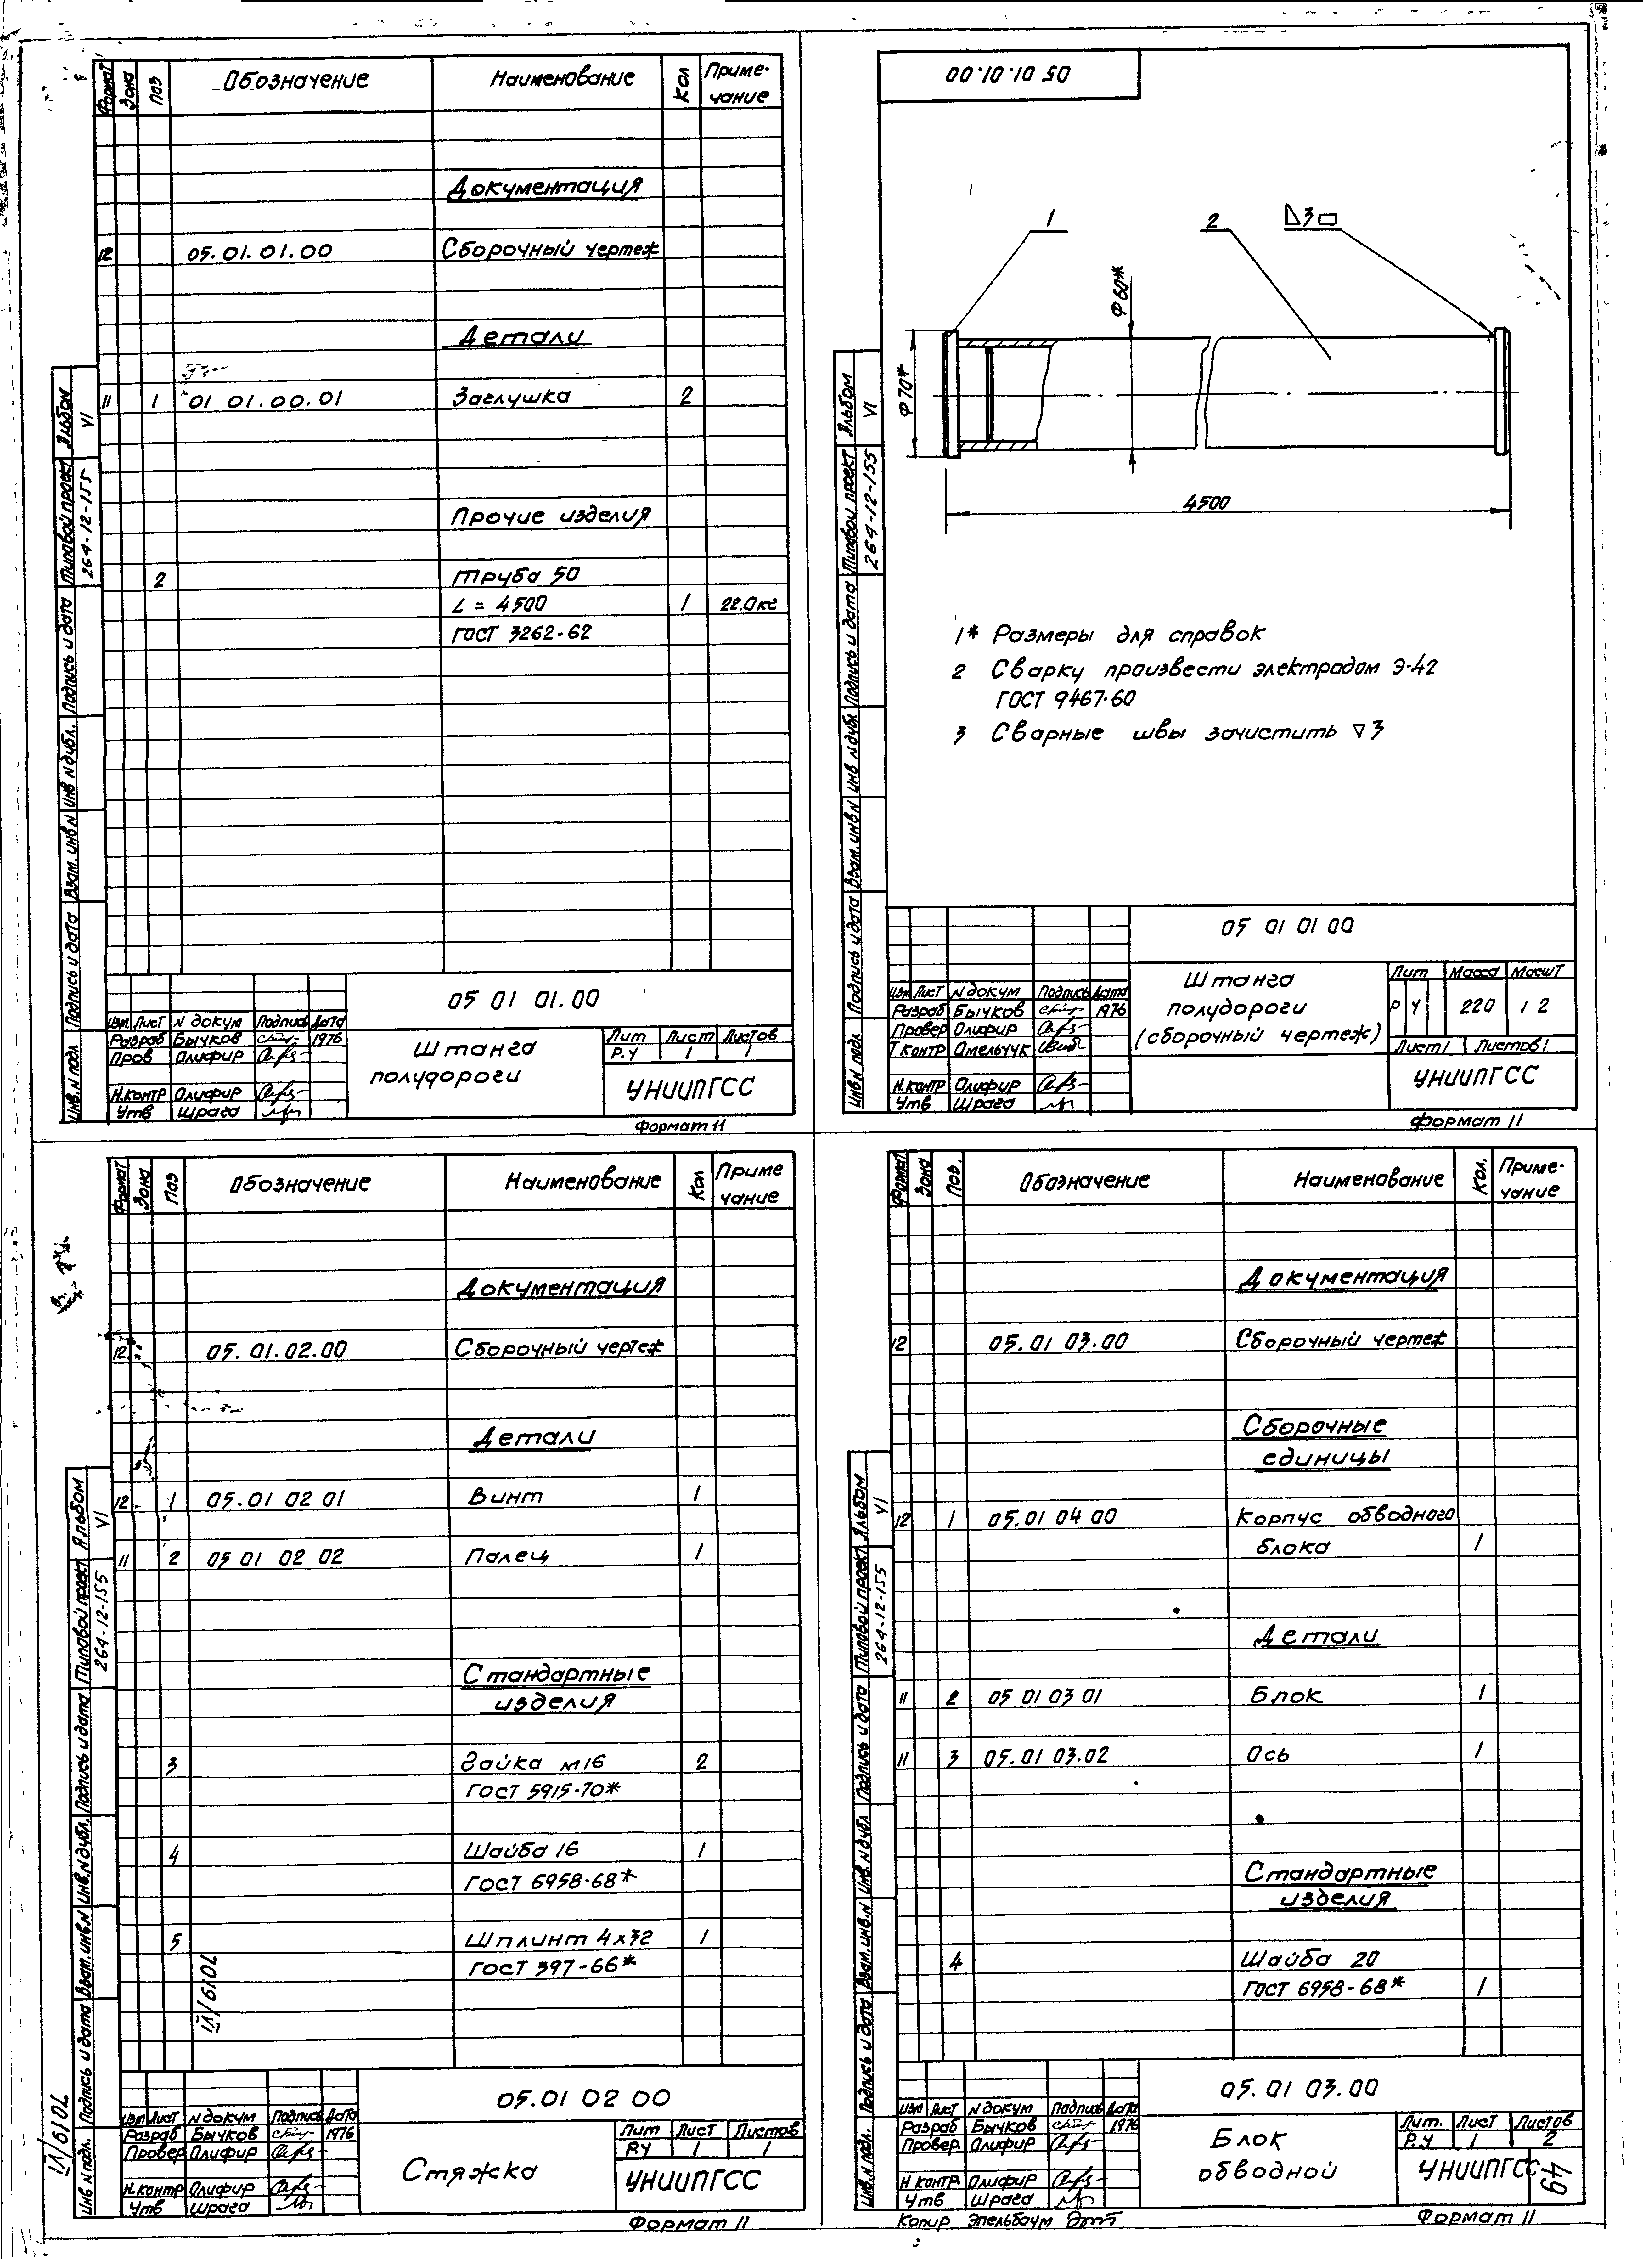 Формат Зона Поз Обозначение Наименование Кол Приме-
чание
Документация
12 05.01.01.00 Сборочный чертеж
Детали
11 1 01 01.00.01 Заглушка 2
Прочие изделия
2 Труба 50
L = 4500 1 22.0кг
ГОСТ 3262-62
Альбом VI
Типовой проект 264-12-155
Подпись и дата
Инв N дубл.
Взам. инв N
Подпись и дата
Инв. N подл
05 01 01.00
Изм Лист N докум Подпись Дата
Разраб Бычков 1976
Пров Олифир
Н.контр Олифир
Утв Шрага
Штанга
полудороги
Лит Лист Листов
Р.У 1 1
УНИИПГСС
Формат 11
05.01.01.00
1 2 3
Ф60*
Ф70*
4500
1* Размеры для справок
2 Сварку произвести электродом Э-42
ГОСТ 9467-60
3 Сварные швы зачистить ▽3
Альбом VI
Типовой проект 264-12-155
Подпись и дата
Инв N дубл
Взам. инв N
Подпись и дата
Инв N подл
05 01 01 00
Изм Лист N докум Подпись Дата
Разраб Бычков 1976
Провер Олифир
Т контр Омельчук
Н.контр Олифир
Утв Шрага
Штанга
полудороги
(сборочный чертеж)
Лит Масса Масшт
Р У 220 1 2
Лист 1 Листов 1
УНИИПГСС
Формат 11
Формат Зона Поз Обозначение Наименование Кол Приме
чание
Документация
12 05.01.02.00 Сборочный чертеж
Детали
12 1 05.01 02 01 Винт 1
11 2 05 01 02 02 Палец 1
Стандартные
изделия
3 Гайка м16 2
ГОСТ 5915-70*
4 Шайба 16 1
ГОСТ 6958-68*
5 Шплинт 4х32 1
ГОСТ 397-66*
7019/VI
Альбом VI
Типовой проект 264-12-155
Подпись и дата
Инв. N дубл.
Взам. инв. N
Подпись и дата
Инв N подл.
7019/VI
05.01 02 00
Изм Лист N докум Подпись Дата
Разраб Бычков 1976
Провер Олифир
Н.контр Олифир
Утв Шрага
Стяжка
Лит Лист Листов
Р.У 1 1
УНИИПГСС
Формат 11
Формат Зона Поз. Обозначение Наименование Кол. Приме-
чание
Документация
12 05.01 03.00 Сборочный чертеж
Сборочные
единицы
12 1 05.01 04 00 Корпус обводного
блока 1
Детали
11 2 05 01 03 01 Блок 1
11 3 05.01 03.02 Ось 1
Стандартные
изделия
4 Шайба 20
ГОСТ 6958-68* 1
Альбом VI
Типовой проект 264-12-155
Подпись и дата
Инв. N дубл
Взам. инв. N
Подпись и дата
Инв. N подл.
05.01 03.00
Изм Лист N докум Подпись Дата
Разраб Бычков 1976
Провер. Олифир
Н контр. Олифир
Утв Шрага
Блок
обводной
Лит. Лист Листов
Р.У 1 2
УНИИПГСС
49
Копир Эпельбаум
Формат 11